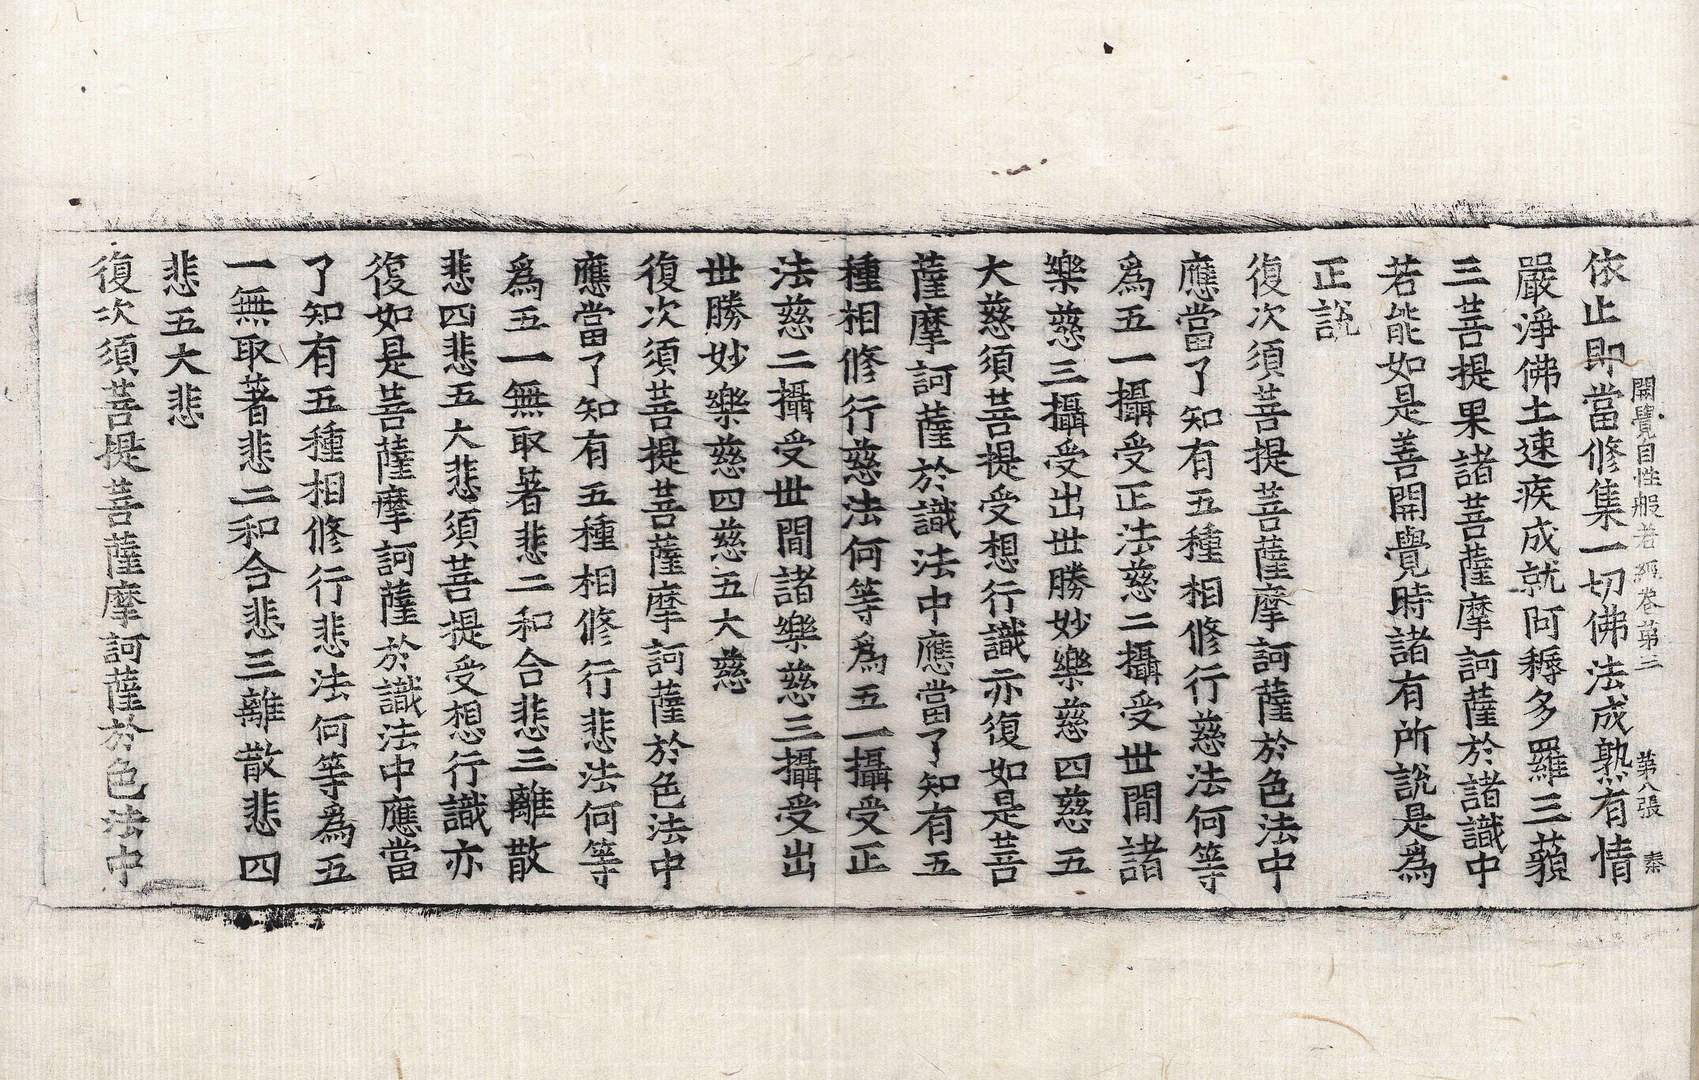 開覺自性般若經卷第三　第八張　秦
依止即當修集一切佛法成熟有情
嚴淨佛土速疾成就阿耨多羅三藐
三菩提果諸菩薩摩訶薩於諸識中
若能如是善開覺時諸有所說是為
正說
復次須菩提菩薩摩訶薩於色法中
應當了知有五種相修行慈法何等
為五一攝受正法慈二攝受世間諸
樂慈三攝受出世勝妙樂慈四慈五
大慈須菩提受想行識亦復如是菩
薩摩訶薩於識法中應當了知有五
種相修行慈法何等為五一攝受正
法慈二攝受世間諸樂慈三攝受出
世勝妙樂慈四慈五大慈
復次須菩提菩薩摩訶薩於色法中
應當了知有五種相修行悲法何等
為五一無取著悲二和合悲三離散
悲四悲五大悲須菩提受想行識亦
復如是菩薩摩訶薩於識法中應當
了知有五種相修行悲法何等為五
一無取著悲二和合悲三離散悲四
悲五大悲
復次須菩提菩薩摩訶薩於色法中